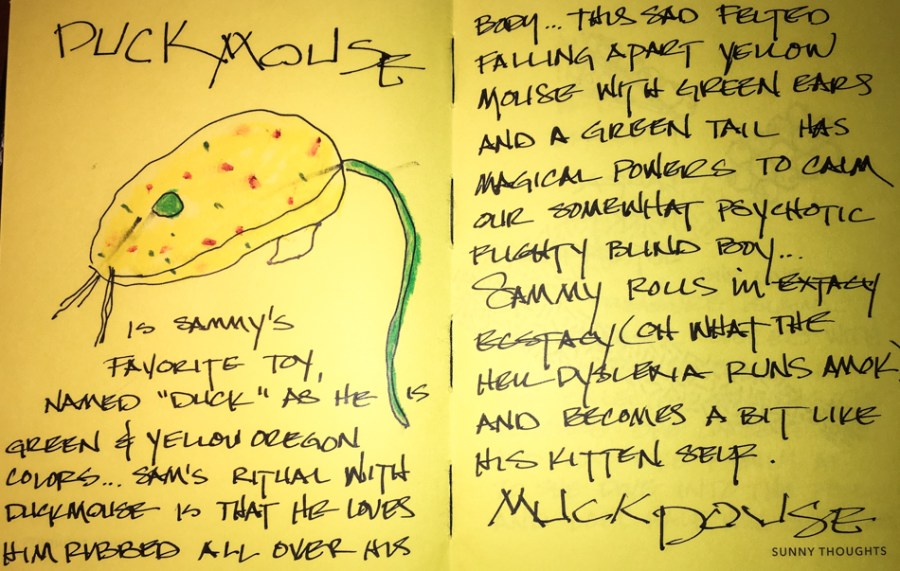 DUCKMOUSE
IS SAMMY'S
FAVORITE TOY,
NAMED "DUCK" AS HE IS
GREEN & YELLOW OREGON
COLORS... SAM'S RITUAL WITH
DUCKMOUSE IS THAT HE LOVES
HIM RUBBED ALL OVER HIS
BODY... THIS SAD FELTED
FALLING APART YELLOW
MOUSE WITH GREEN EARS
AND A GREEN TAIL HAS
MAGICAL POWERS TO CALM
OUR SOMEWHAT PSYCHOTIC
FLIGHTY BLIND BODY...
SAMMY ROLLS IN EXTACY
ECSTACY (OH WHAT THE
HELL DYSLEXIA RUNS AMOK)
AND BECOMES A BIT LIKE
HIS KITTEN SELF.
MUCKDOUSE
SUNNY THOUGHTS